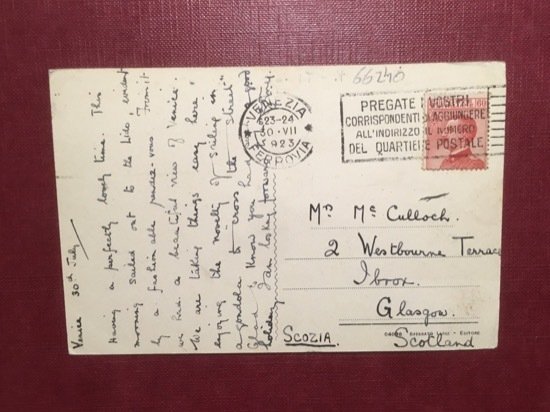 66240
VENEZIA
23-24
30·VII
1923
FERROVIA
PREGATE I VOSTRI
CORRISPONDENTI DI AGGIUNGERE
ALL'INDIRIZZO IL NUMERO
DEL QUARTIERE POSTALE
Venice 30th July
Having a perfectly lovely time. This
morning sailed out to the Lido
by a fashionable rendez-vous
we had a beautiful view of Venice.
We are taking things easy here &
enjoying the novelty of "sailing in
a gondola to cross the street"
Glad to know you had a good
holiday. Am looking forward
Mrs Mc Culloch.
2 Westbourne Terrace
Ibrox.
Glasgow.
SCOZIA. Scotland
EDITORE